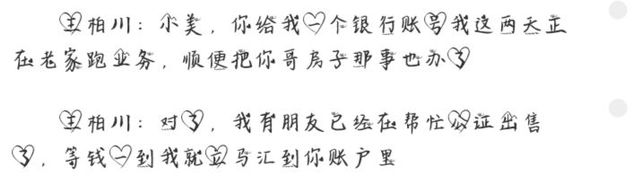 王柏川：小美，你给我一个银行账号我这两天正
在老家跑业务，顺便把你哥房子那事也办了
王柏川：对了，我有朋友已经在帮忙公证出售
了，等钱一到我就立马汇到你账户里